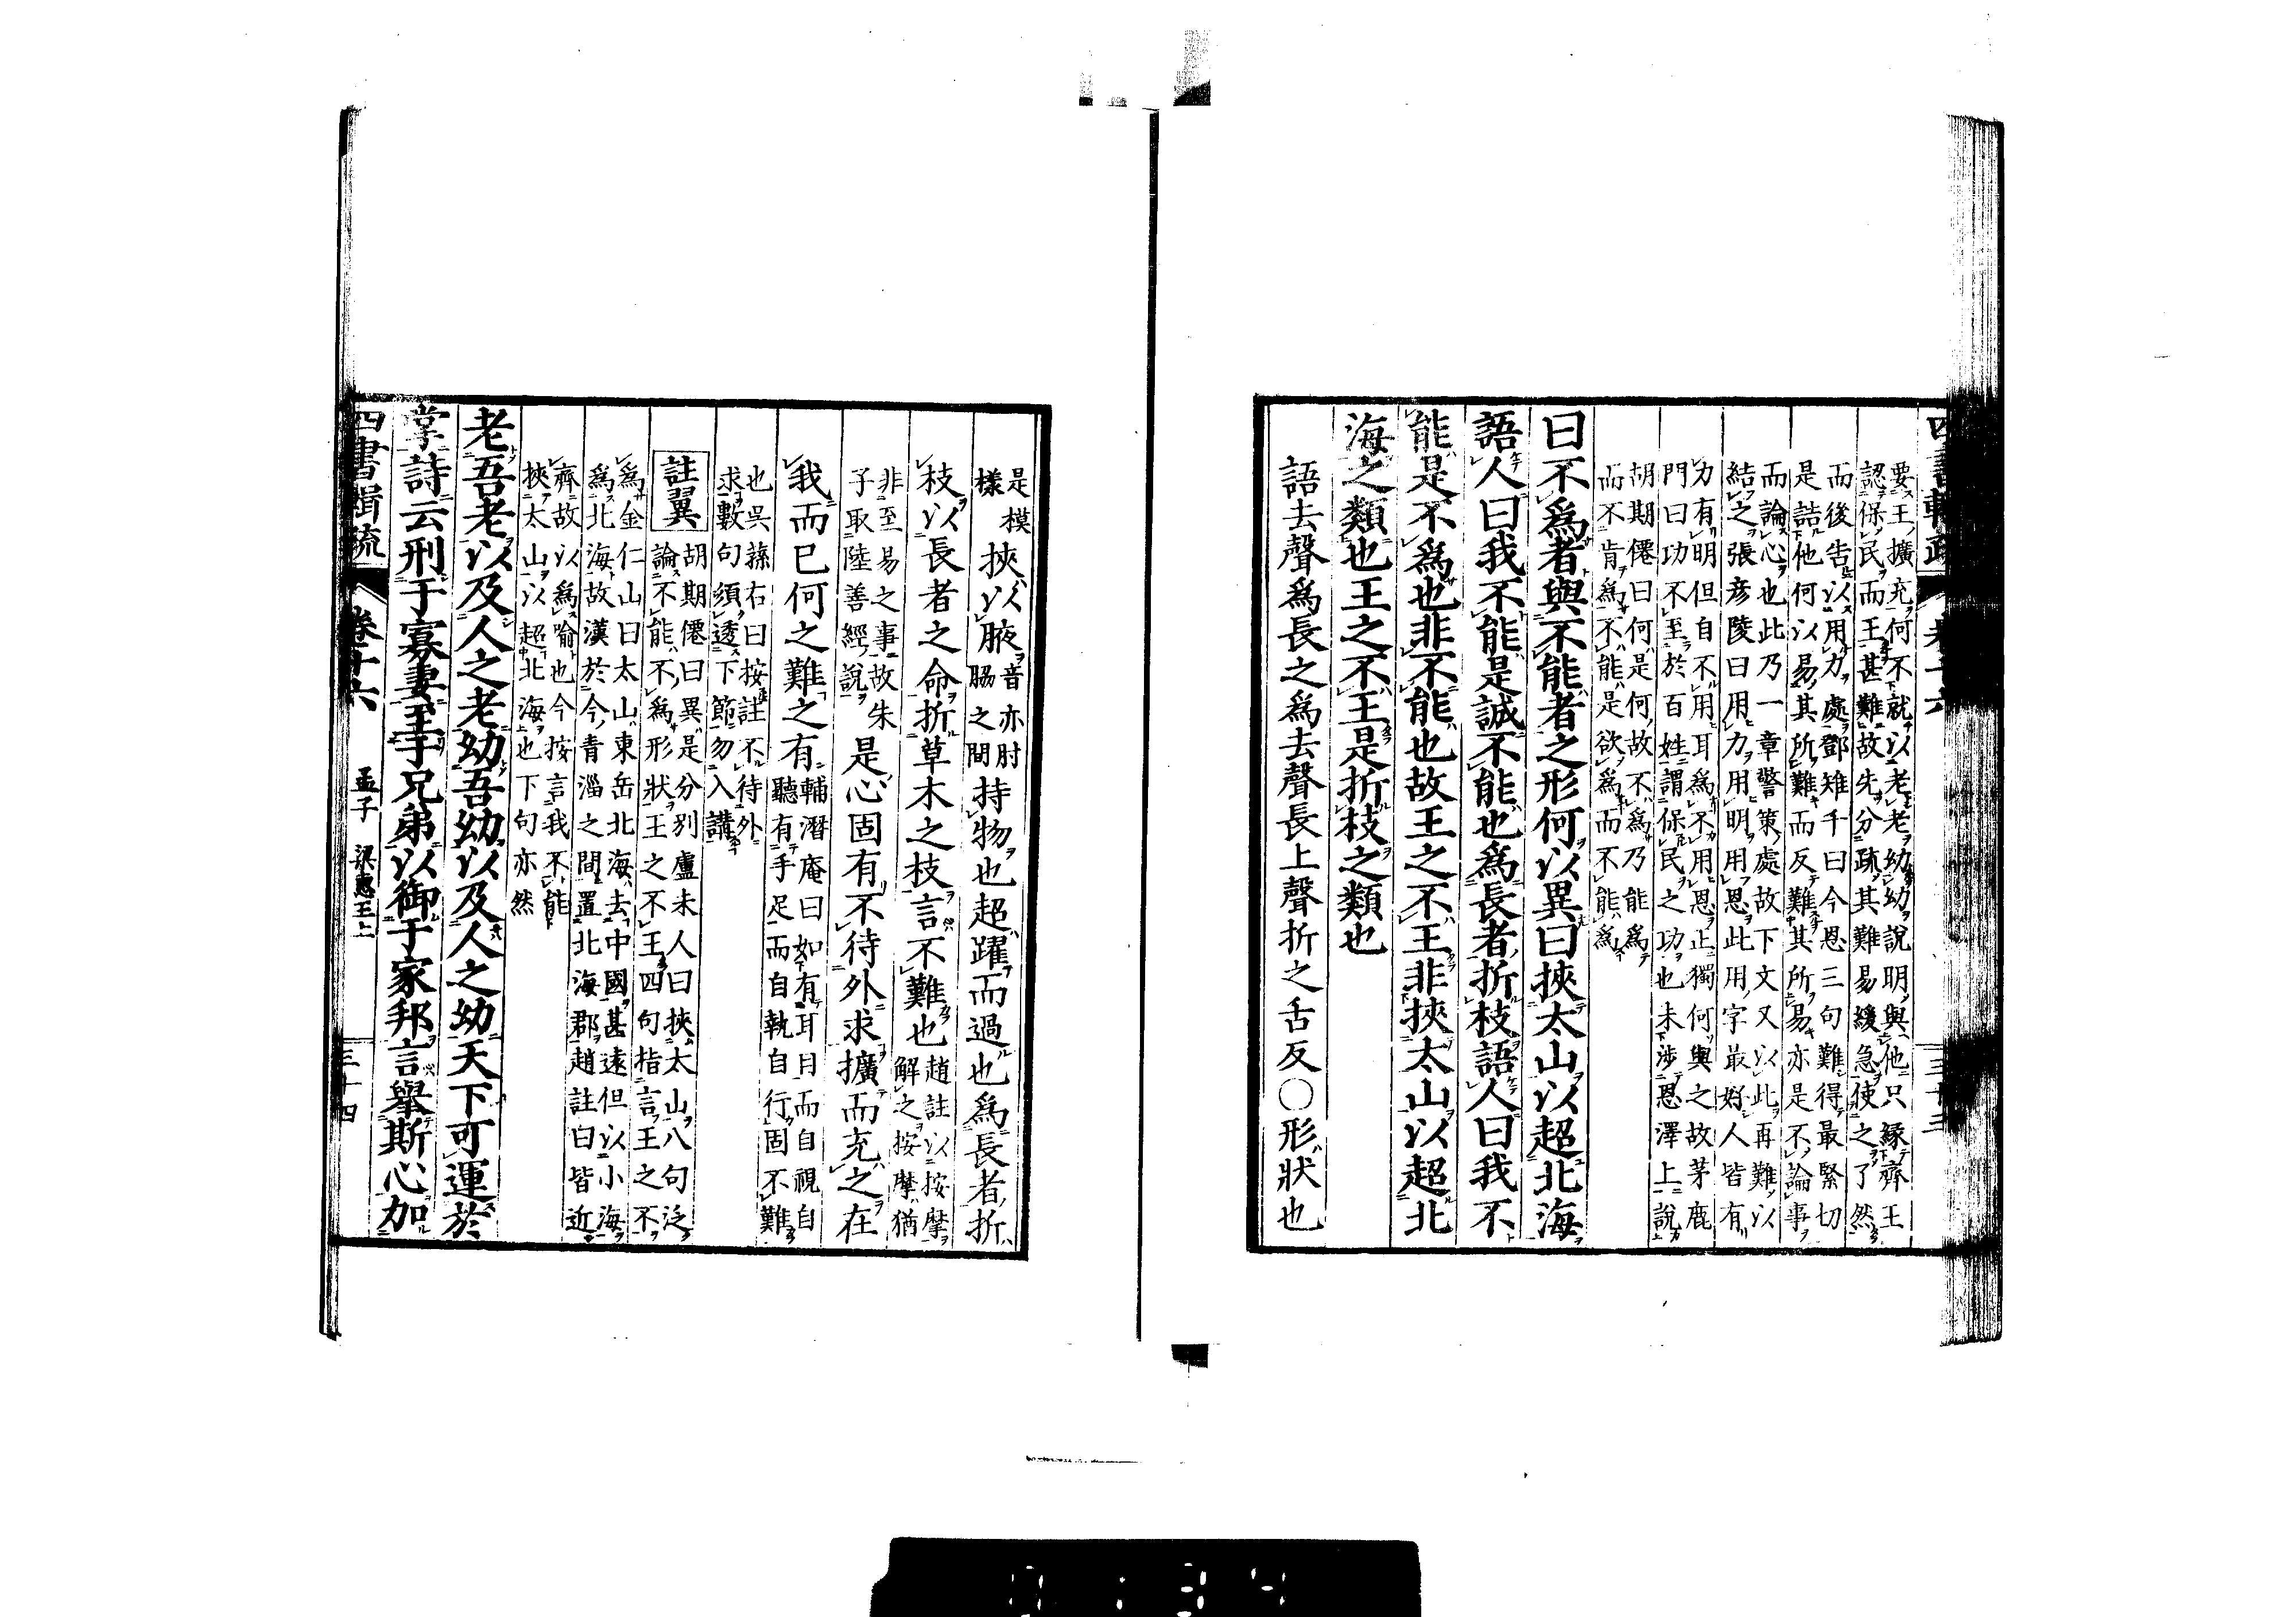 要王擴充何不就以老老幼幼說明與他只緣齊王
認保民而王甚難故先分疏其難易緩急使之了然
而後告以用力處鄧雉千曰今恩三句難得最緊切
是詰他何以易其所難而反難其所易亦是不論事
而論心也此乃一章警策處故下文又以此再難以
結之張彥陵曰用力用明用恩此用字最好人皆有
力有明但自不用耳爲不用恩正獨何與之故茅鹿
門曰功不至於百姓謂保民之功也未涉恩澤上說
胡期僊曰何是何故不爲乃能爲
而不肯爲不能是欲爲而不能爲
曰不爲者與不能者之形何以異曰挾太山以超北海
語人曰我不能是誠不能也爲長者折枝語人曰我不
能是不爲也非不能也故王之不王非挾太山以超北
海之類也王之不王是折枝之類也
語去聲爲長之爲去聲長上聲折之舌反○形狀也
是模
樣
挾以腋
音亦肘
脇之間
持物也超躍而過也爲長者折
枝以長者之命折草木之枝言不難也
趙註以按摩
解之按摩猶
非至易之事故朱
子取陸善經說
是心固有不待外求擴而充之在
我而已何之難之有
輔潛庵曰如有耳目而自視自
聽有手足而自執自行固不難
也吳蓀右曰按註不待外
求數句須透下節勿入講
註翼
胡期僊曰異是分別盧未人曰挾太山八句泛
論不能不爲形狀王之不王四句指言王之不
爲金仁山曰太山東岳北海去中國甚遠但以小海
爲北海故漢於今青淄之間置北海郡趙註曰皆近
齊故以爲喻也今按言我不能
挾太山以超北海也下句亦然
老吾老以及人之老幼吾幼以及人之幼天下可運於
掌詩云刑于寡妻至于兄弟以御于家邦言舉斯心加
四書輯疏
卷十六
孟子
梁惠王上
三十四